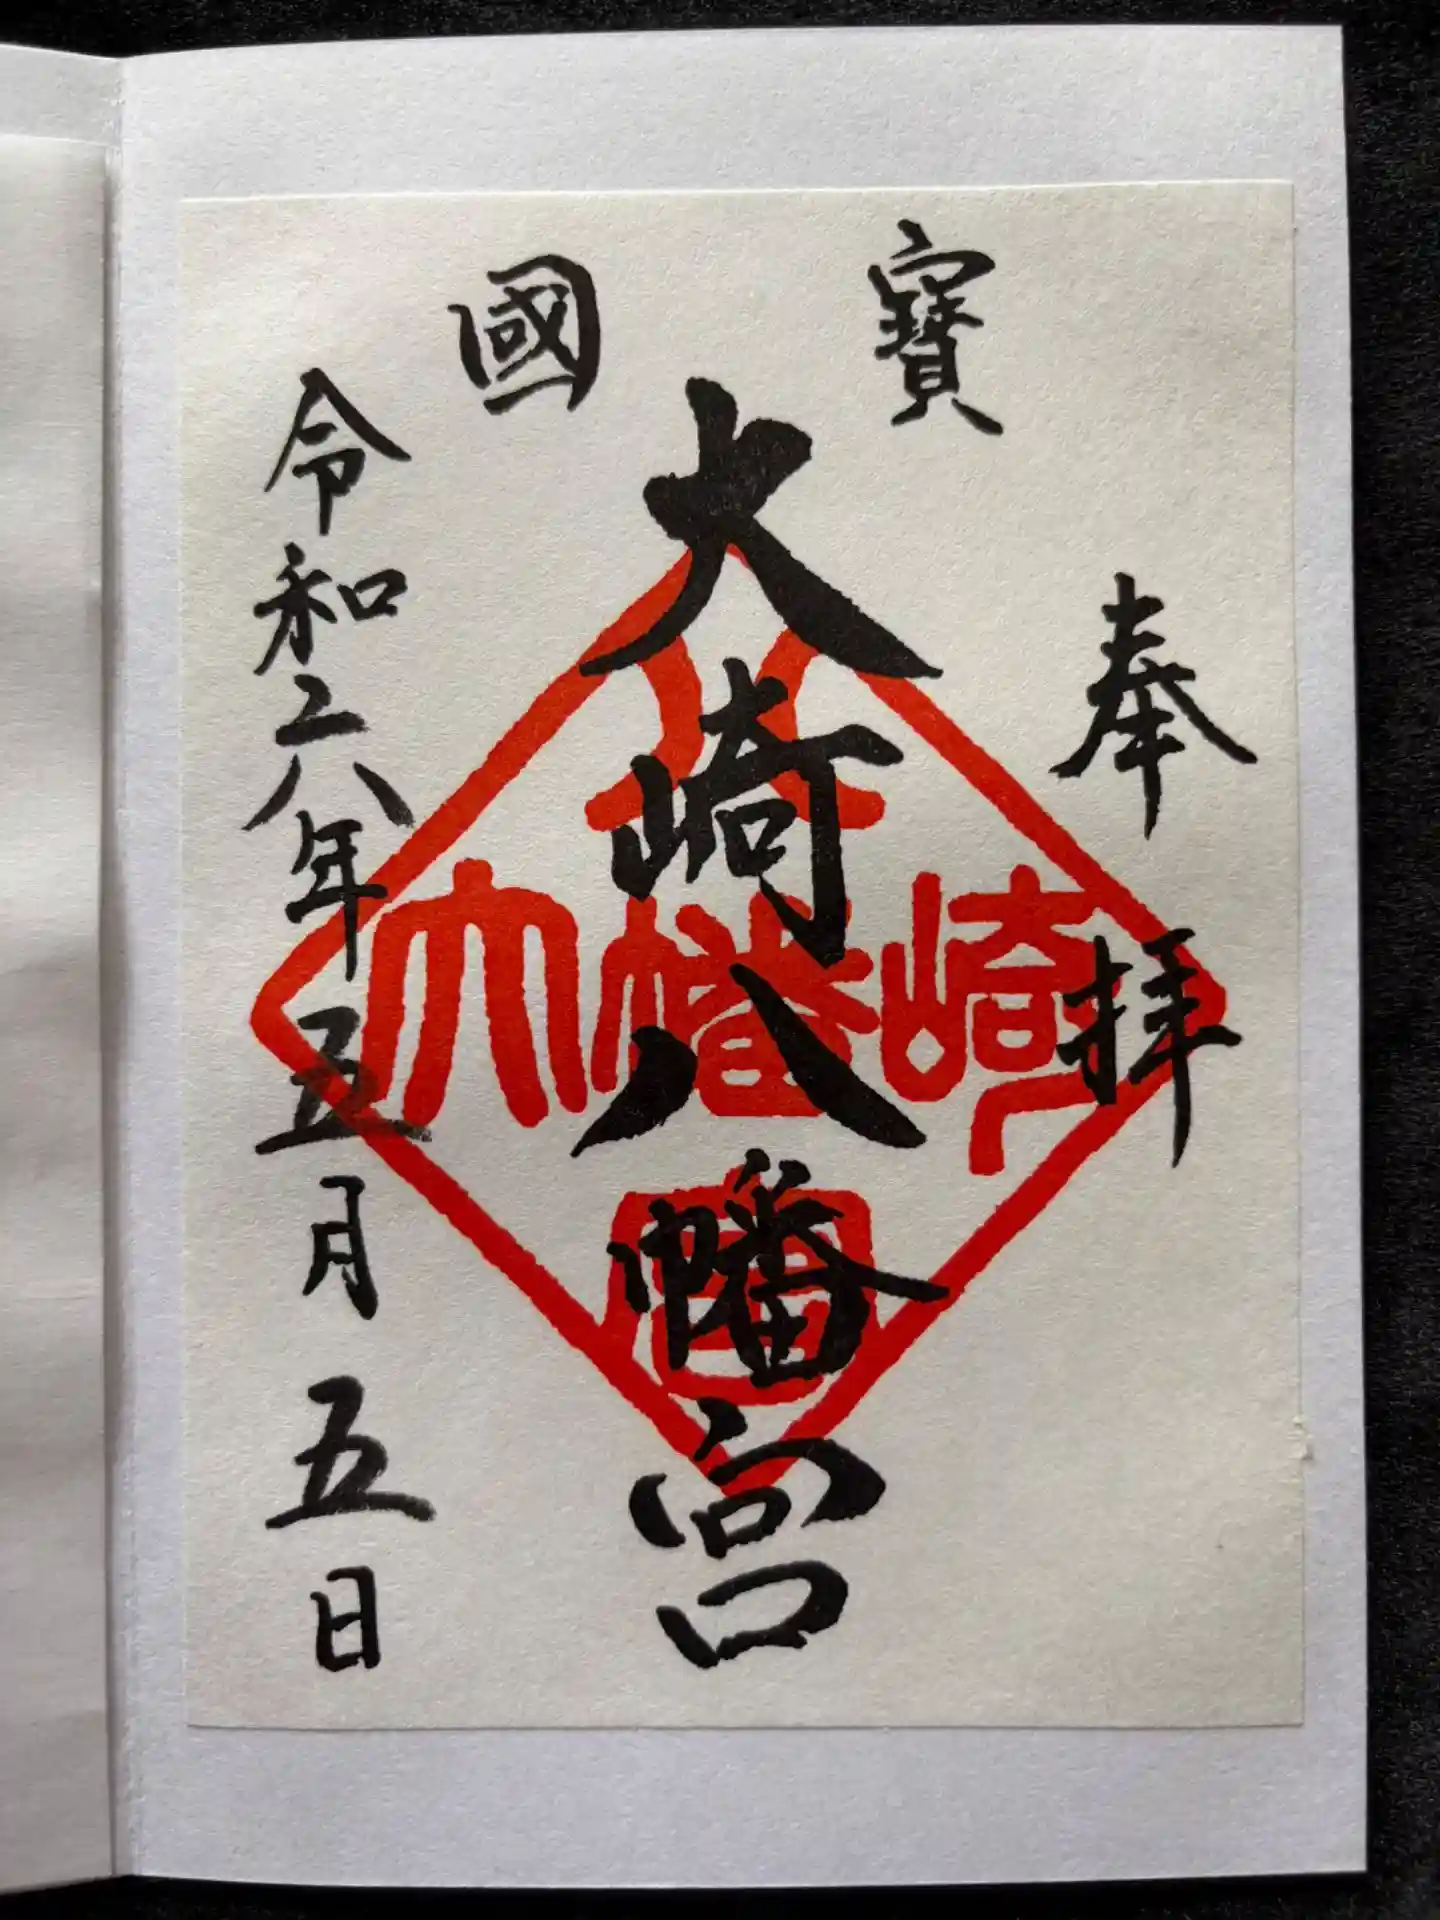 奉拝
寶
大崎八幡宮
國
令和六年五月五日
八
大幡崎
宮